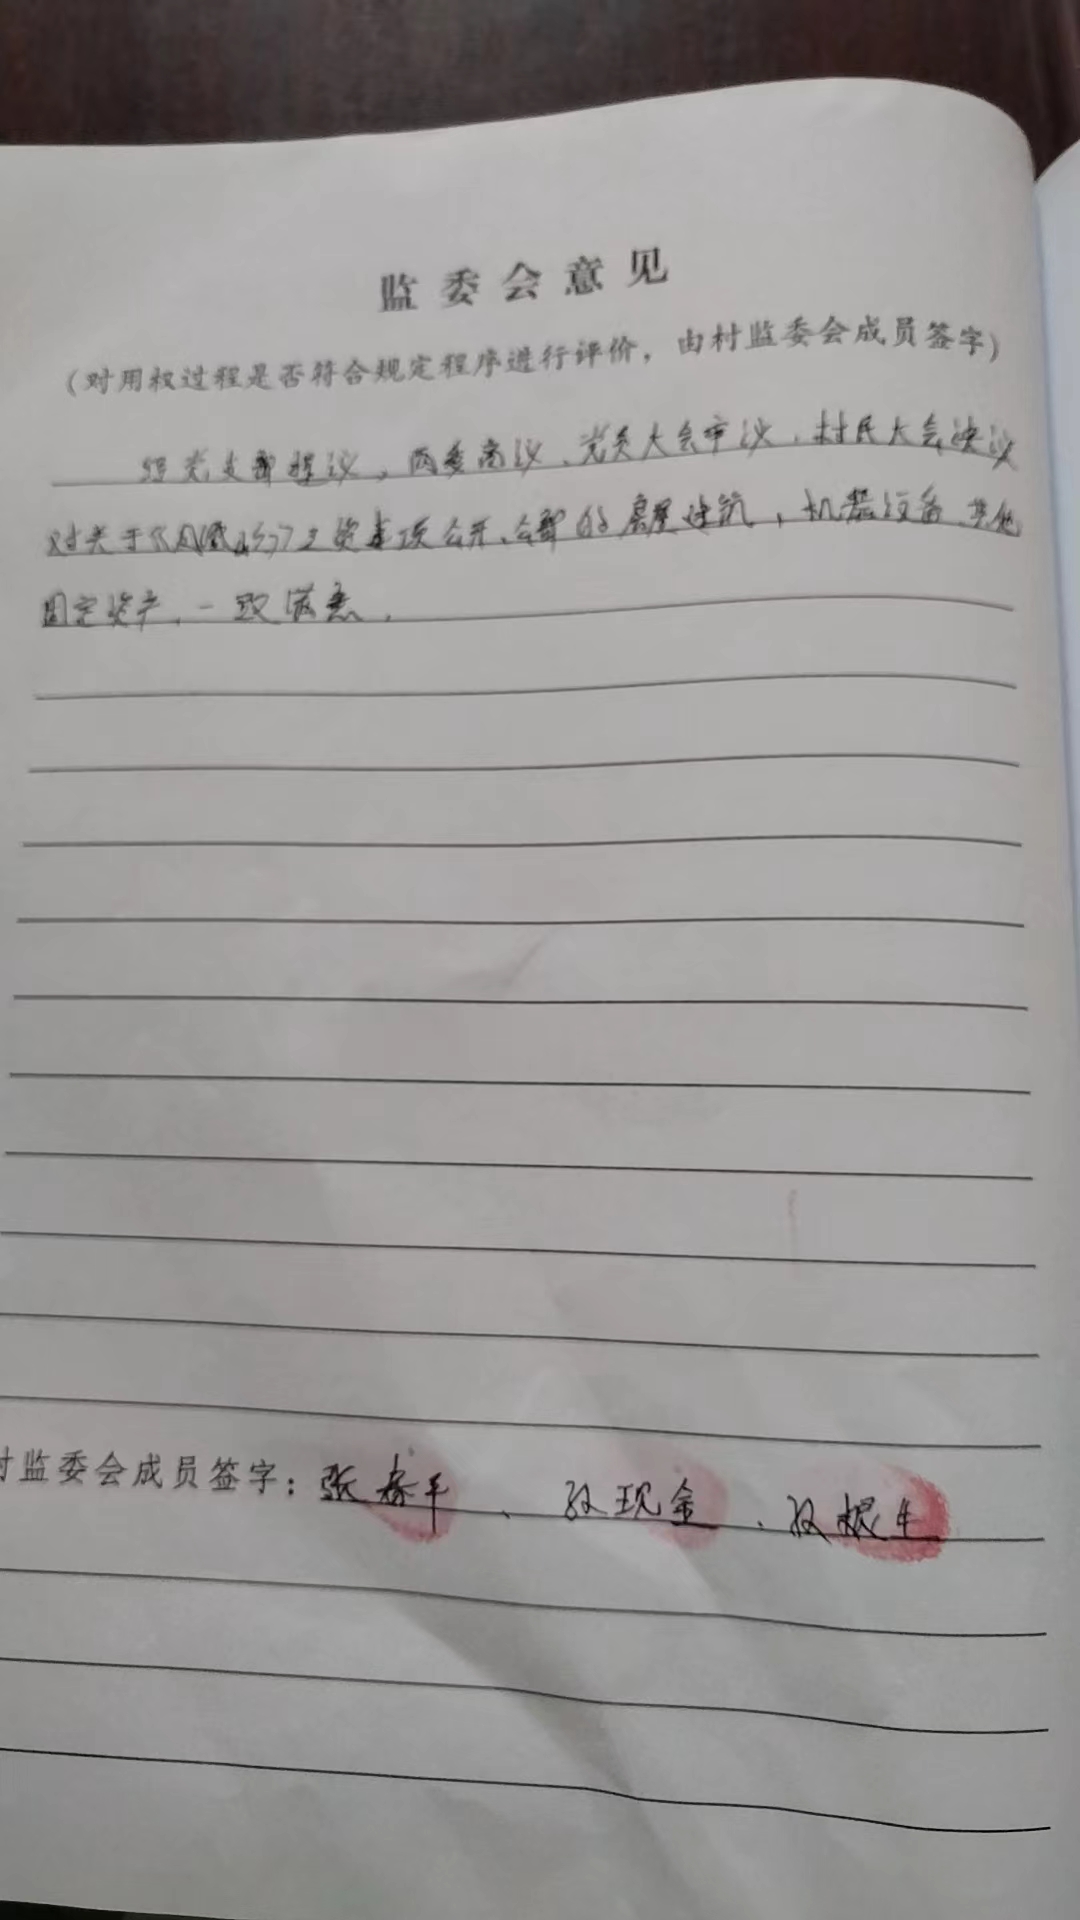 监委会意见
（对用权过程是否符合规定程序进行评价，由村监委会成员签字）
经党支部提议，两委商议、党员大会审议、村民大会决议
对关于 资 项公开、全部的房屋建筑，机器设备、其他
固定资产，一致满意。
村监委会成员签字：张春平、孙现金、孙根生